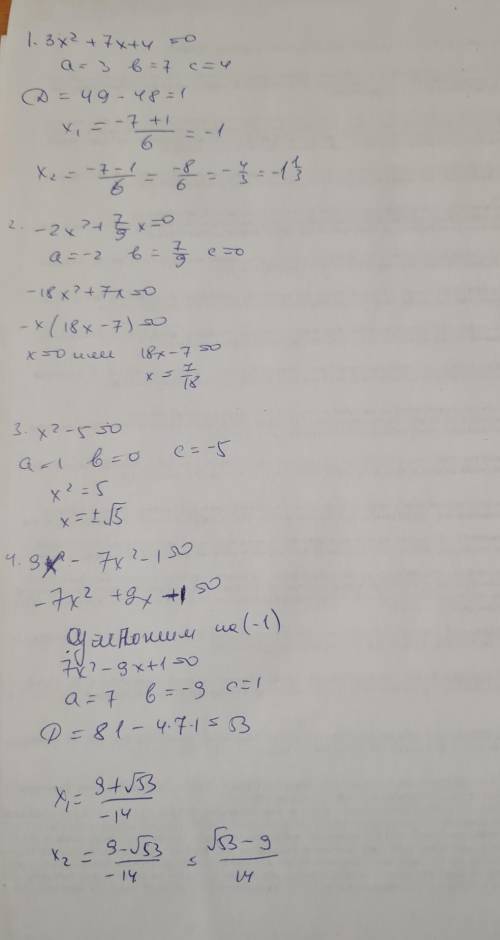 1. 3x² + 7x + 4 = 0
a = 3 в = 7 c = 4
D = 49 - 48 = 1
x₁ = (-7 + 1)/6 = -1
x₂ = (-7 - 1)/6 = -8/6 = -4/3 = -1 1/3
2. -2x² + 7/9 x = 0
a = -2 в = 7/9 c = 0
-18x² + 7x = 0
-x(18x - 7) = 0
x = 0 или 18x - 7 = 0
x = 7/18
3. x² - 5 = 0
a = 1 в = 0 c = -5
x² = 5
x = ±√5
4. 9x - 7x² - 1 = 0
-7x² + 9x - 1 = 0
Домножим на (-1)
7x² - 9x + 1 = 0
a = 7 в = -9 c = 1
D = 81 - 4·7·1 = 53
x₁ = (9 + √53)/-14
x₂ = (9 - √53)/-14 = (√53 - 9)/14